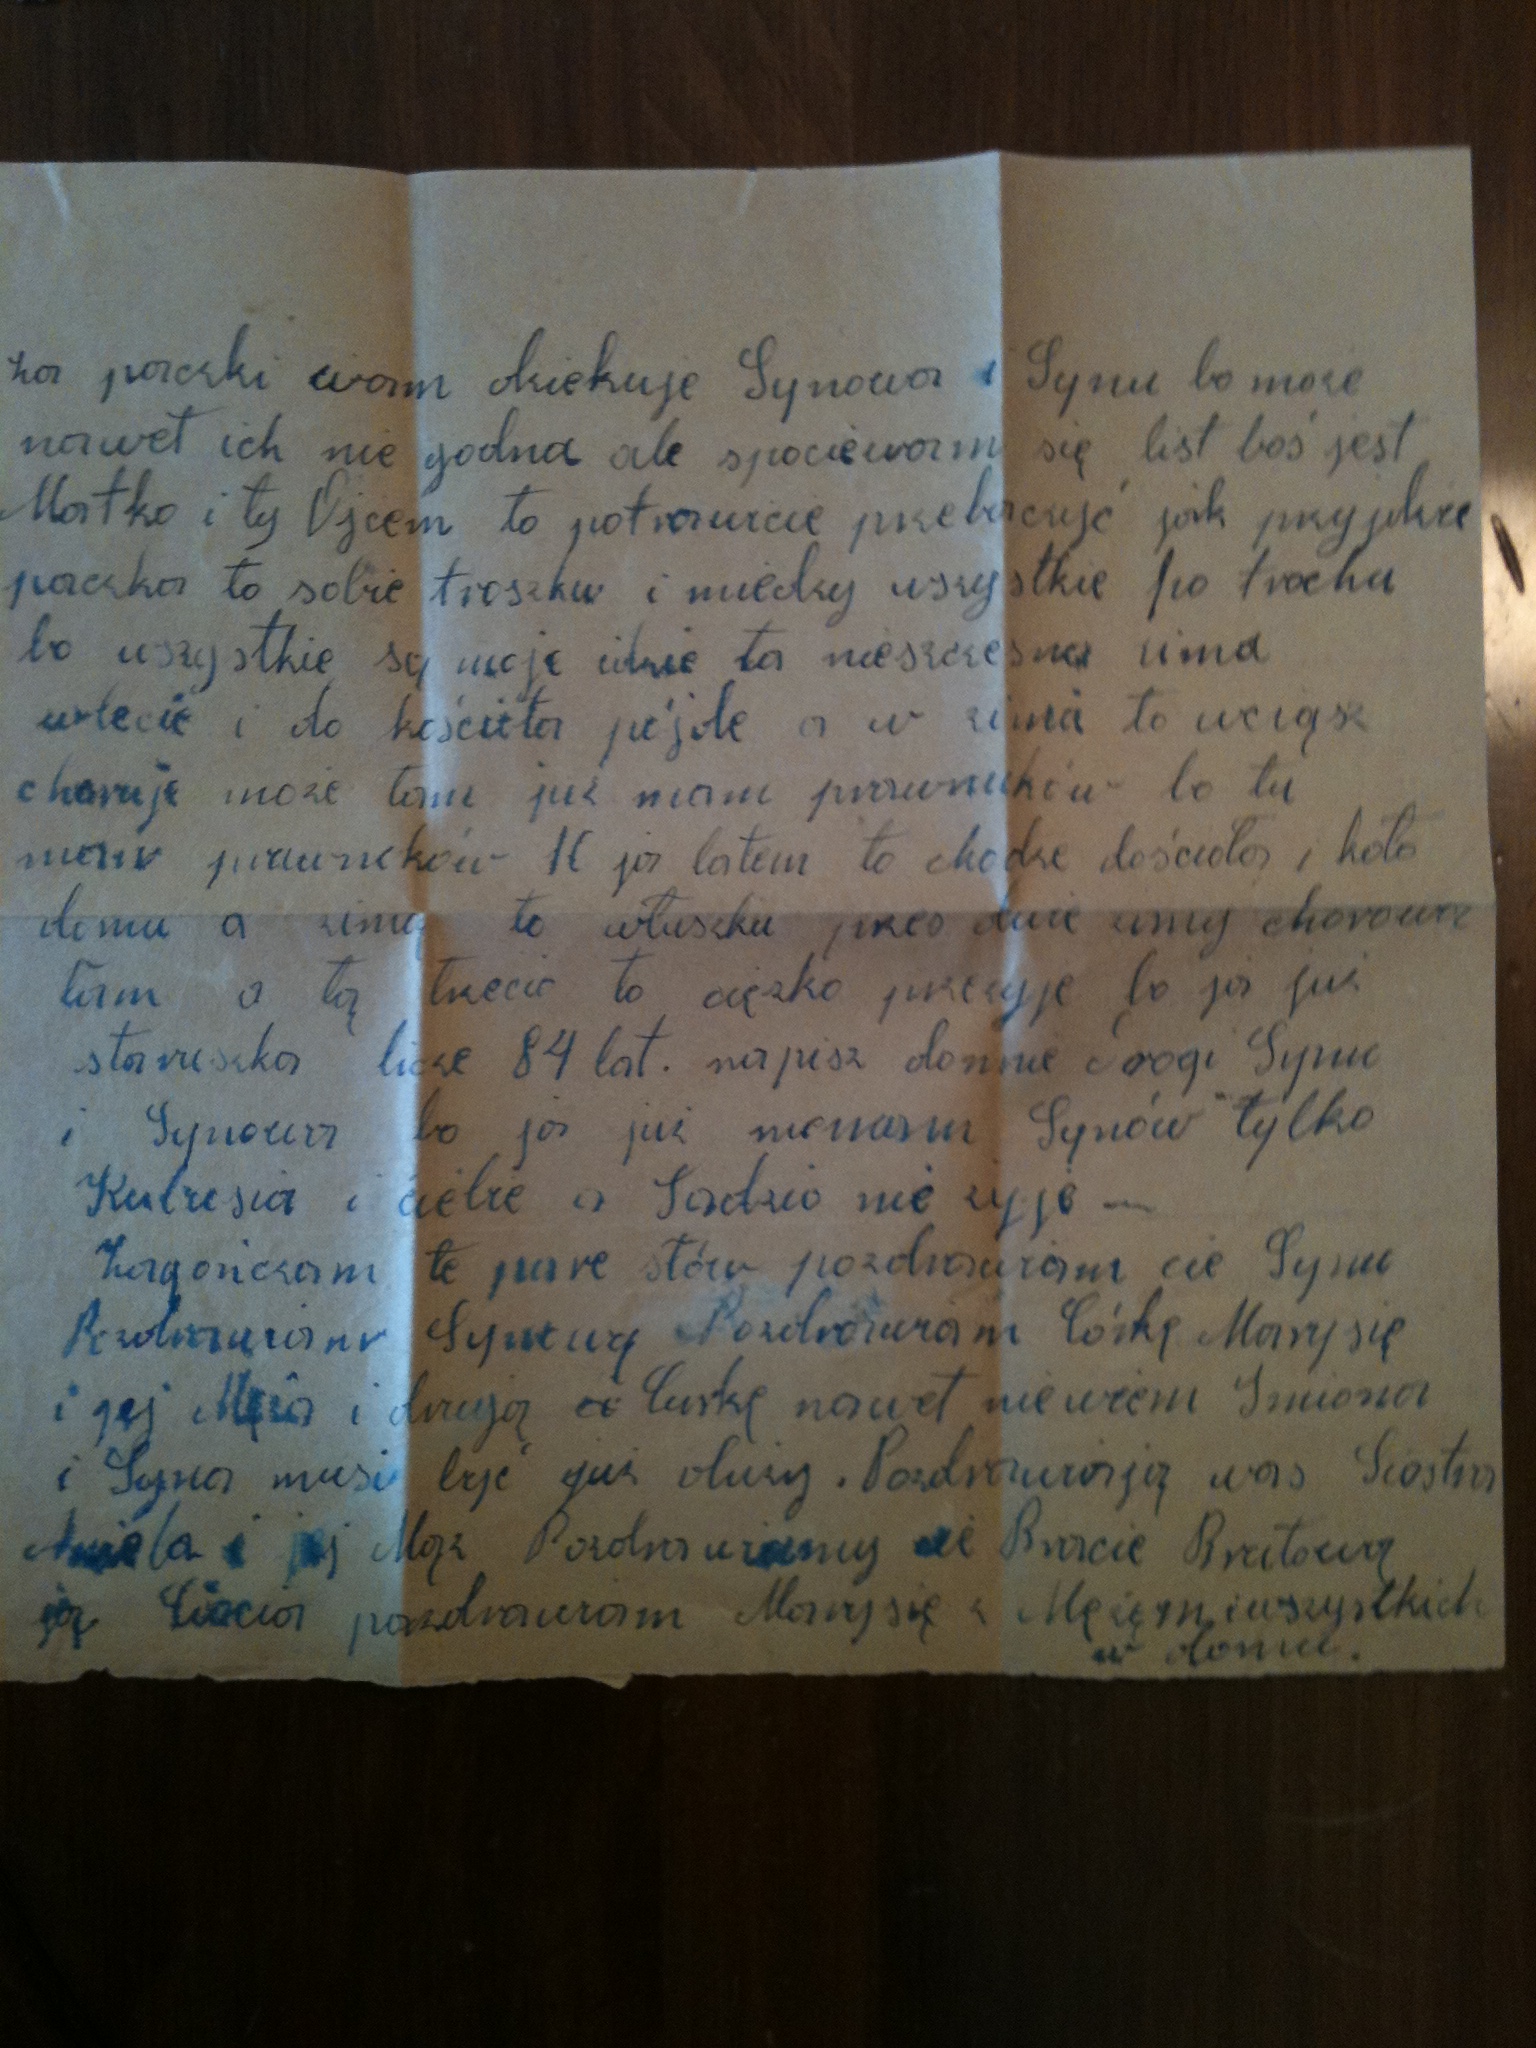 za paczki wam dziekuje Synowa i Synu bo może
nawet ich nie godna ale spociewam się list boś jest
Matko i ty Ojcem to potrawicie przebaczyć jak przyjdzie
paczka to sobie troszku i miedzy wszystkie po trochu
bo wszystkie są moje idzie ta nieszczesna zima
wlecie i do kościoła pójde a w zimie to wciąsz
choruje może tam już mam prawnuków bo tu
mam prawnuków 16 ja latem to chodze dościoła i koło
domu a zimą to włuszku przes dwie zimy chorowa
łam a tą trzecie to ciężko przeżyje bo ja już
staruszka licze 84 lat. napisz domnie drogi Synu
i Synowa bo ja już niemam Synów tylko
i ciebie a nie żyje —
Zagończam te pare słów pozdrawiam cie Synu
Pozdrawiam Synową Pozdrawiam Córkę Marysię
i jej Męża i drugą Curkę nawet niewiem Imiona
i Syna musi być już duży. Pozdrawiają was Siostra
Aniela i jej Mąż Pozdrawiamy cie Bracie Bratową
ja pozdrawiam Marysię z Mężem i wszystkich
w domu.